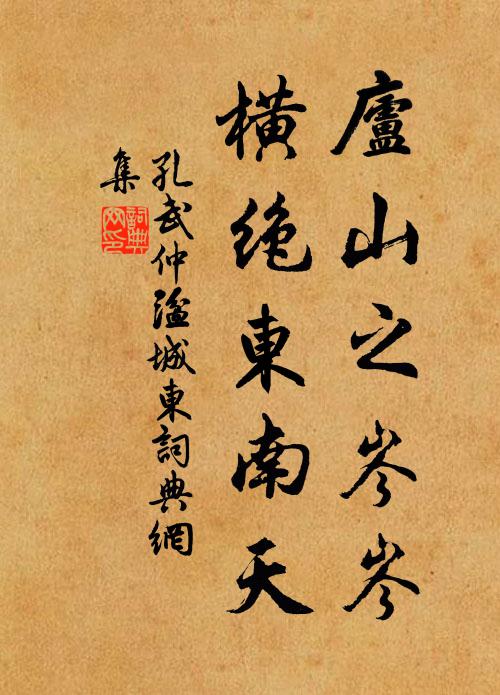 廬山之岑岑
橫絶東南天
孔武仲溢城東詞典網
集
詞典網印